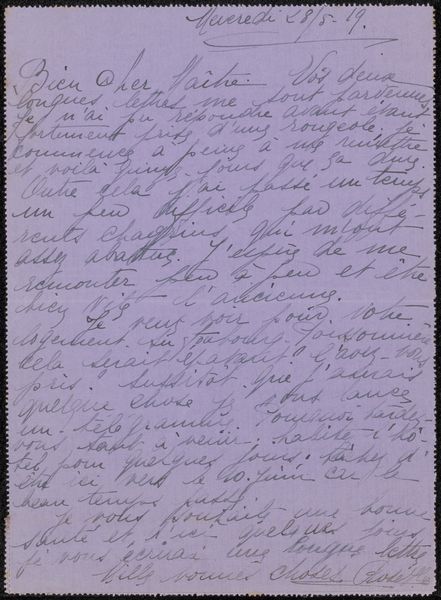 Mercredi 28/5-19.
Bien Cher Maître. Vos deux
longues lettres me sont parvenues,
je n'ai pu répondre avant étant
fortement prise d'une rougeole, je
commence à peine à me remettre
et voilà quinze jours que ça dure.
Outre cela j'ai passé un temps
un peu difficile par diffé-
rents chagrins, qui m'ont
assez abattue. J'espère de me
remonter peu à peu et être
bien vite l'ancienne.
Je veux voir pour votre
logement au faubourg Poissonnière
cela serait épatant! l'avez-vous
pris? Aussitôt que j'aurais
quelque chose je vous lance
un télégramme. Pourquoi tardez-
vous tant à venir; habitez l'hô-
tel pour quelques jours. tâchez d'
être ici vers le 10 juin car le
beau temps passe
Je vous souhaite une bonne
santé et d'ici quelques jours
je vous écrirai une longue lettre
Mille bonnes choses